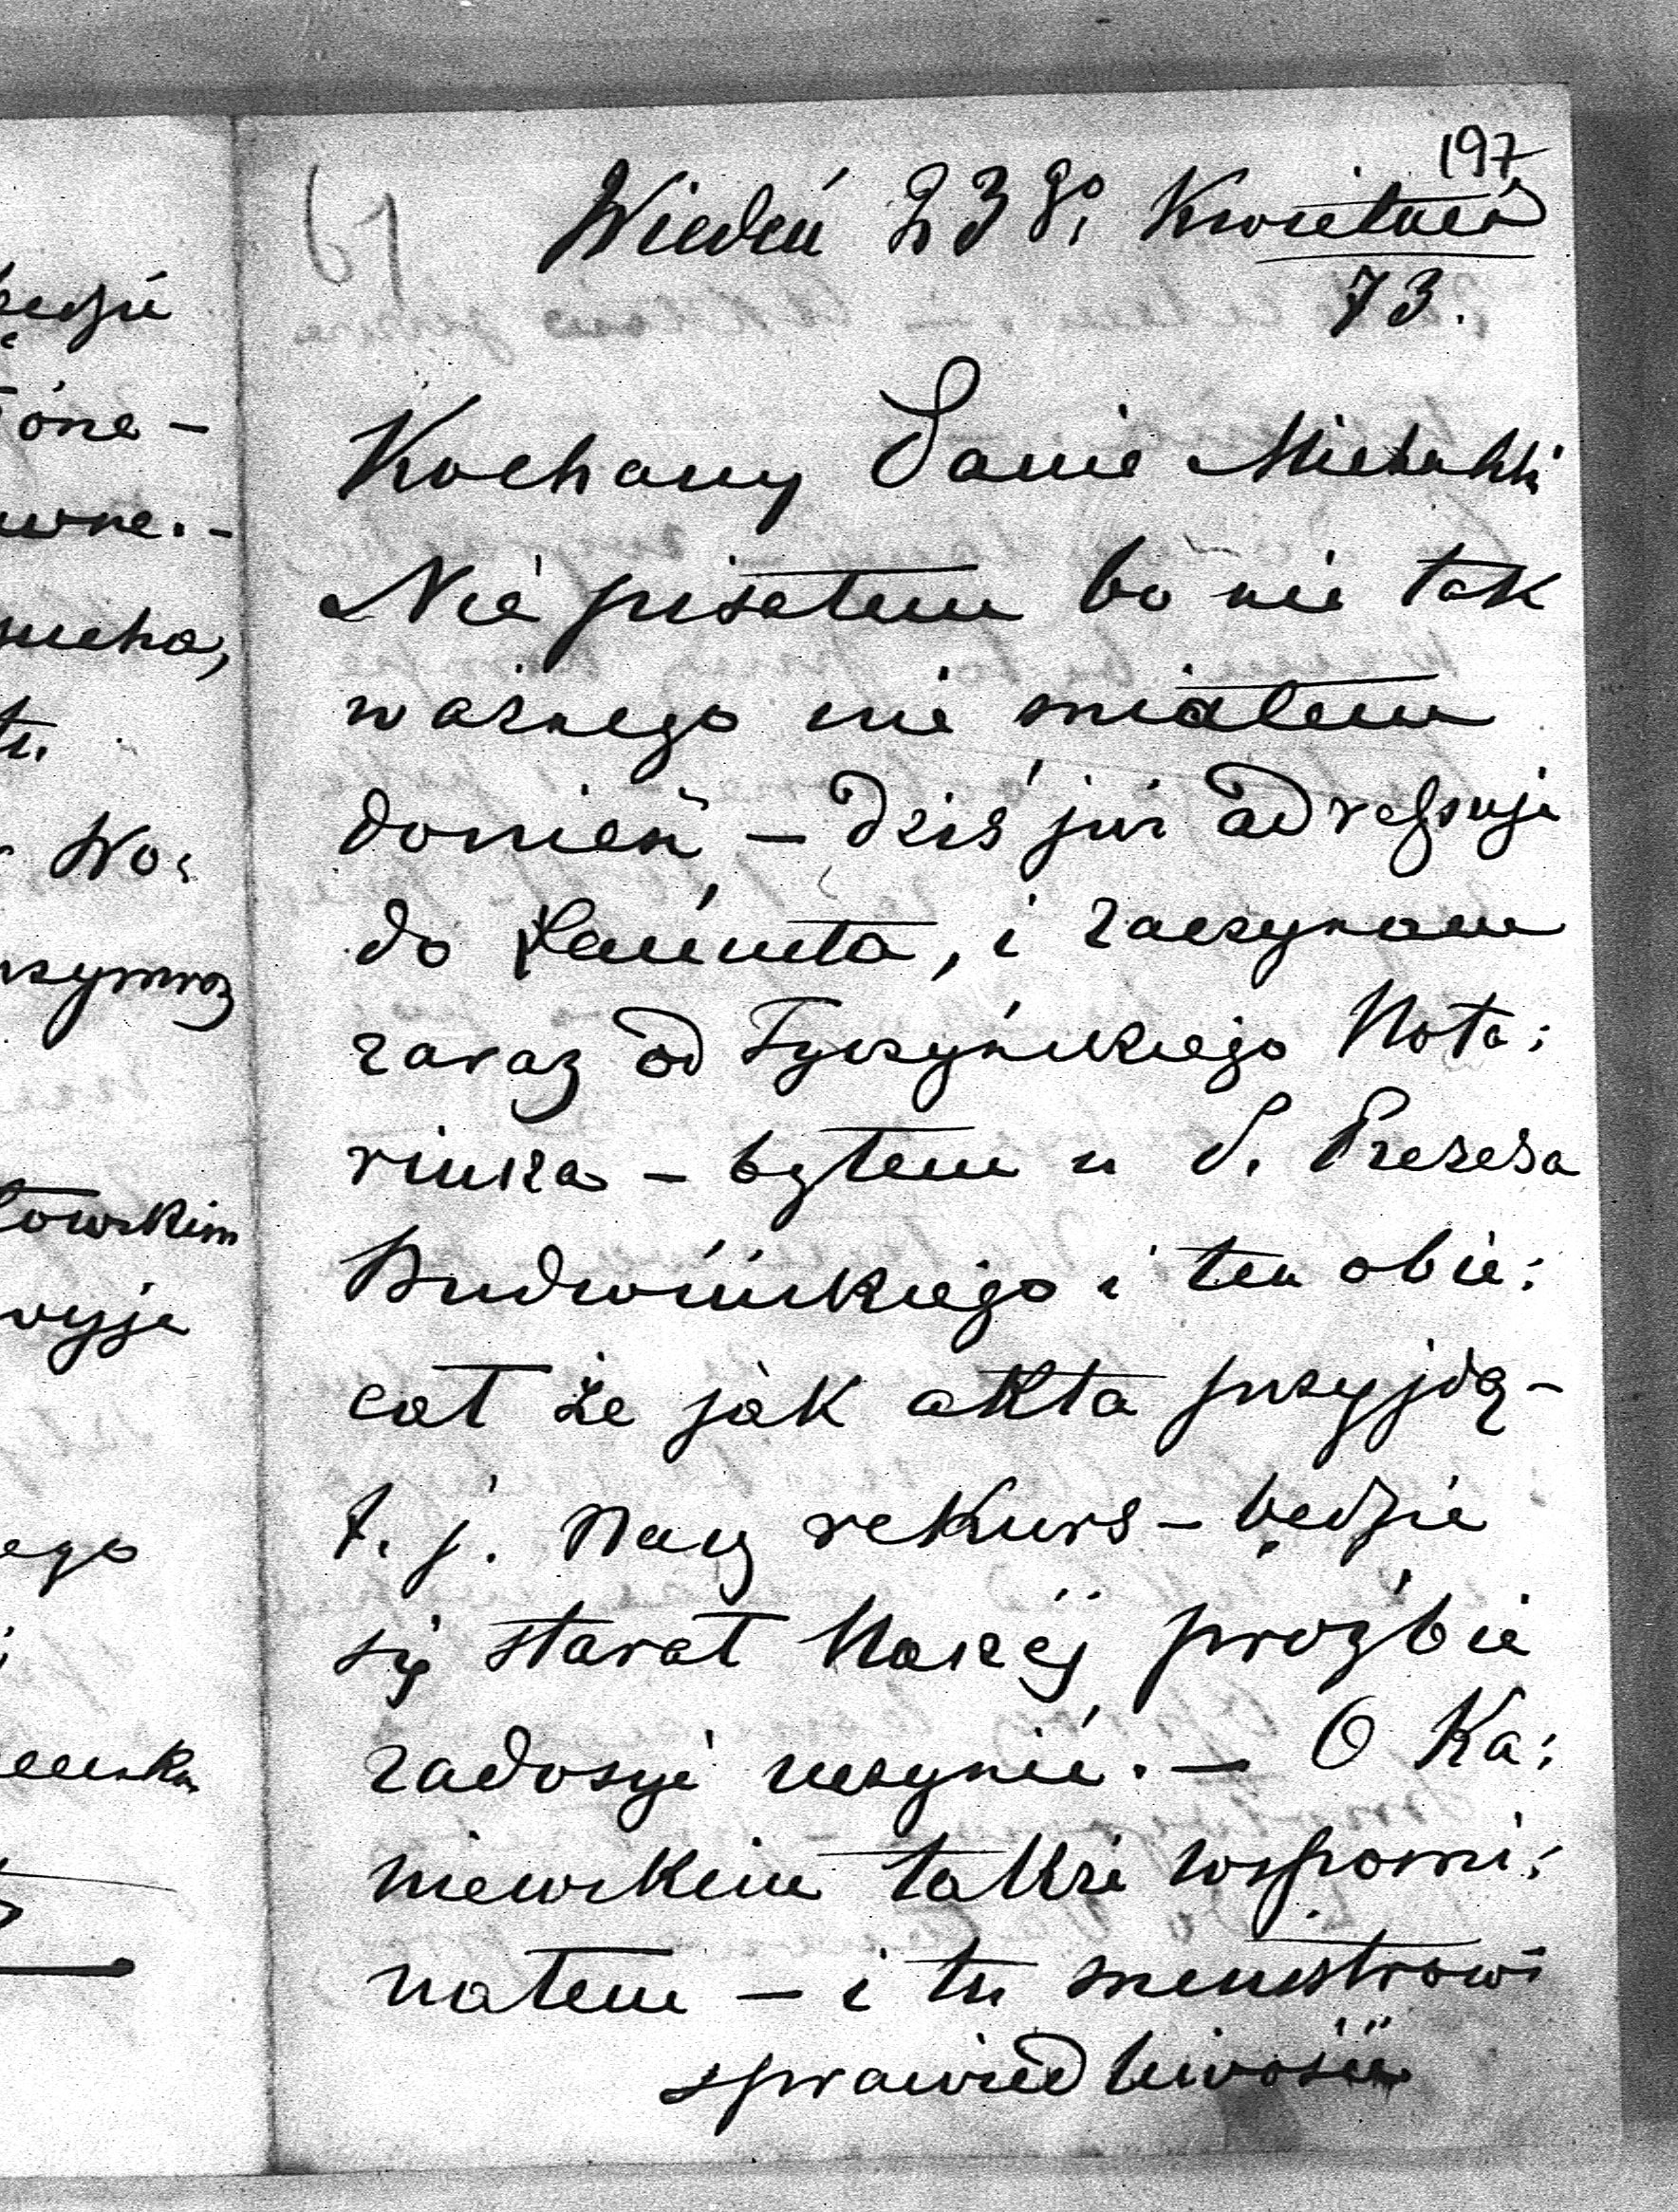 197
61
Wiedeń 23 go Kwietnia
73.
Kochany Panie Michałki
Nie pisałem bo nie tak
ważnego nie miałem
donieść – dziś już adressuję
do Łańcuta, i zaczynam
zaraz od Tyczyńskiego Nota:
riusza – byłem u P. Prezesa
Budwińskiego i ten obie:
cał że jak akta przyjdą –
t. j. Nasz rekurs – będzie
się starał Naszéj prożbie
zadosyć uczynić. – O Ka:
niewskim także wspomi:
nałem – i tu ministrowi
sprawiedliwości
będzie
óne –
wne. –
ucha,
tu.
No:
towskim
ego